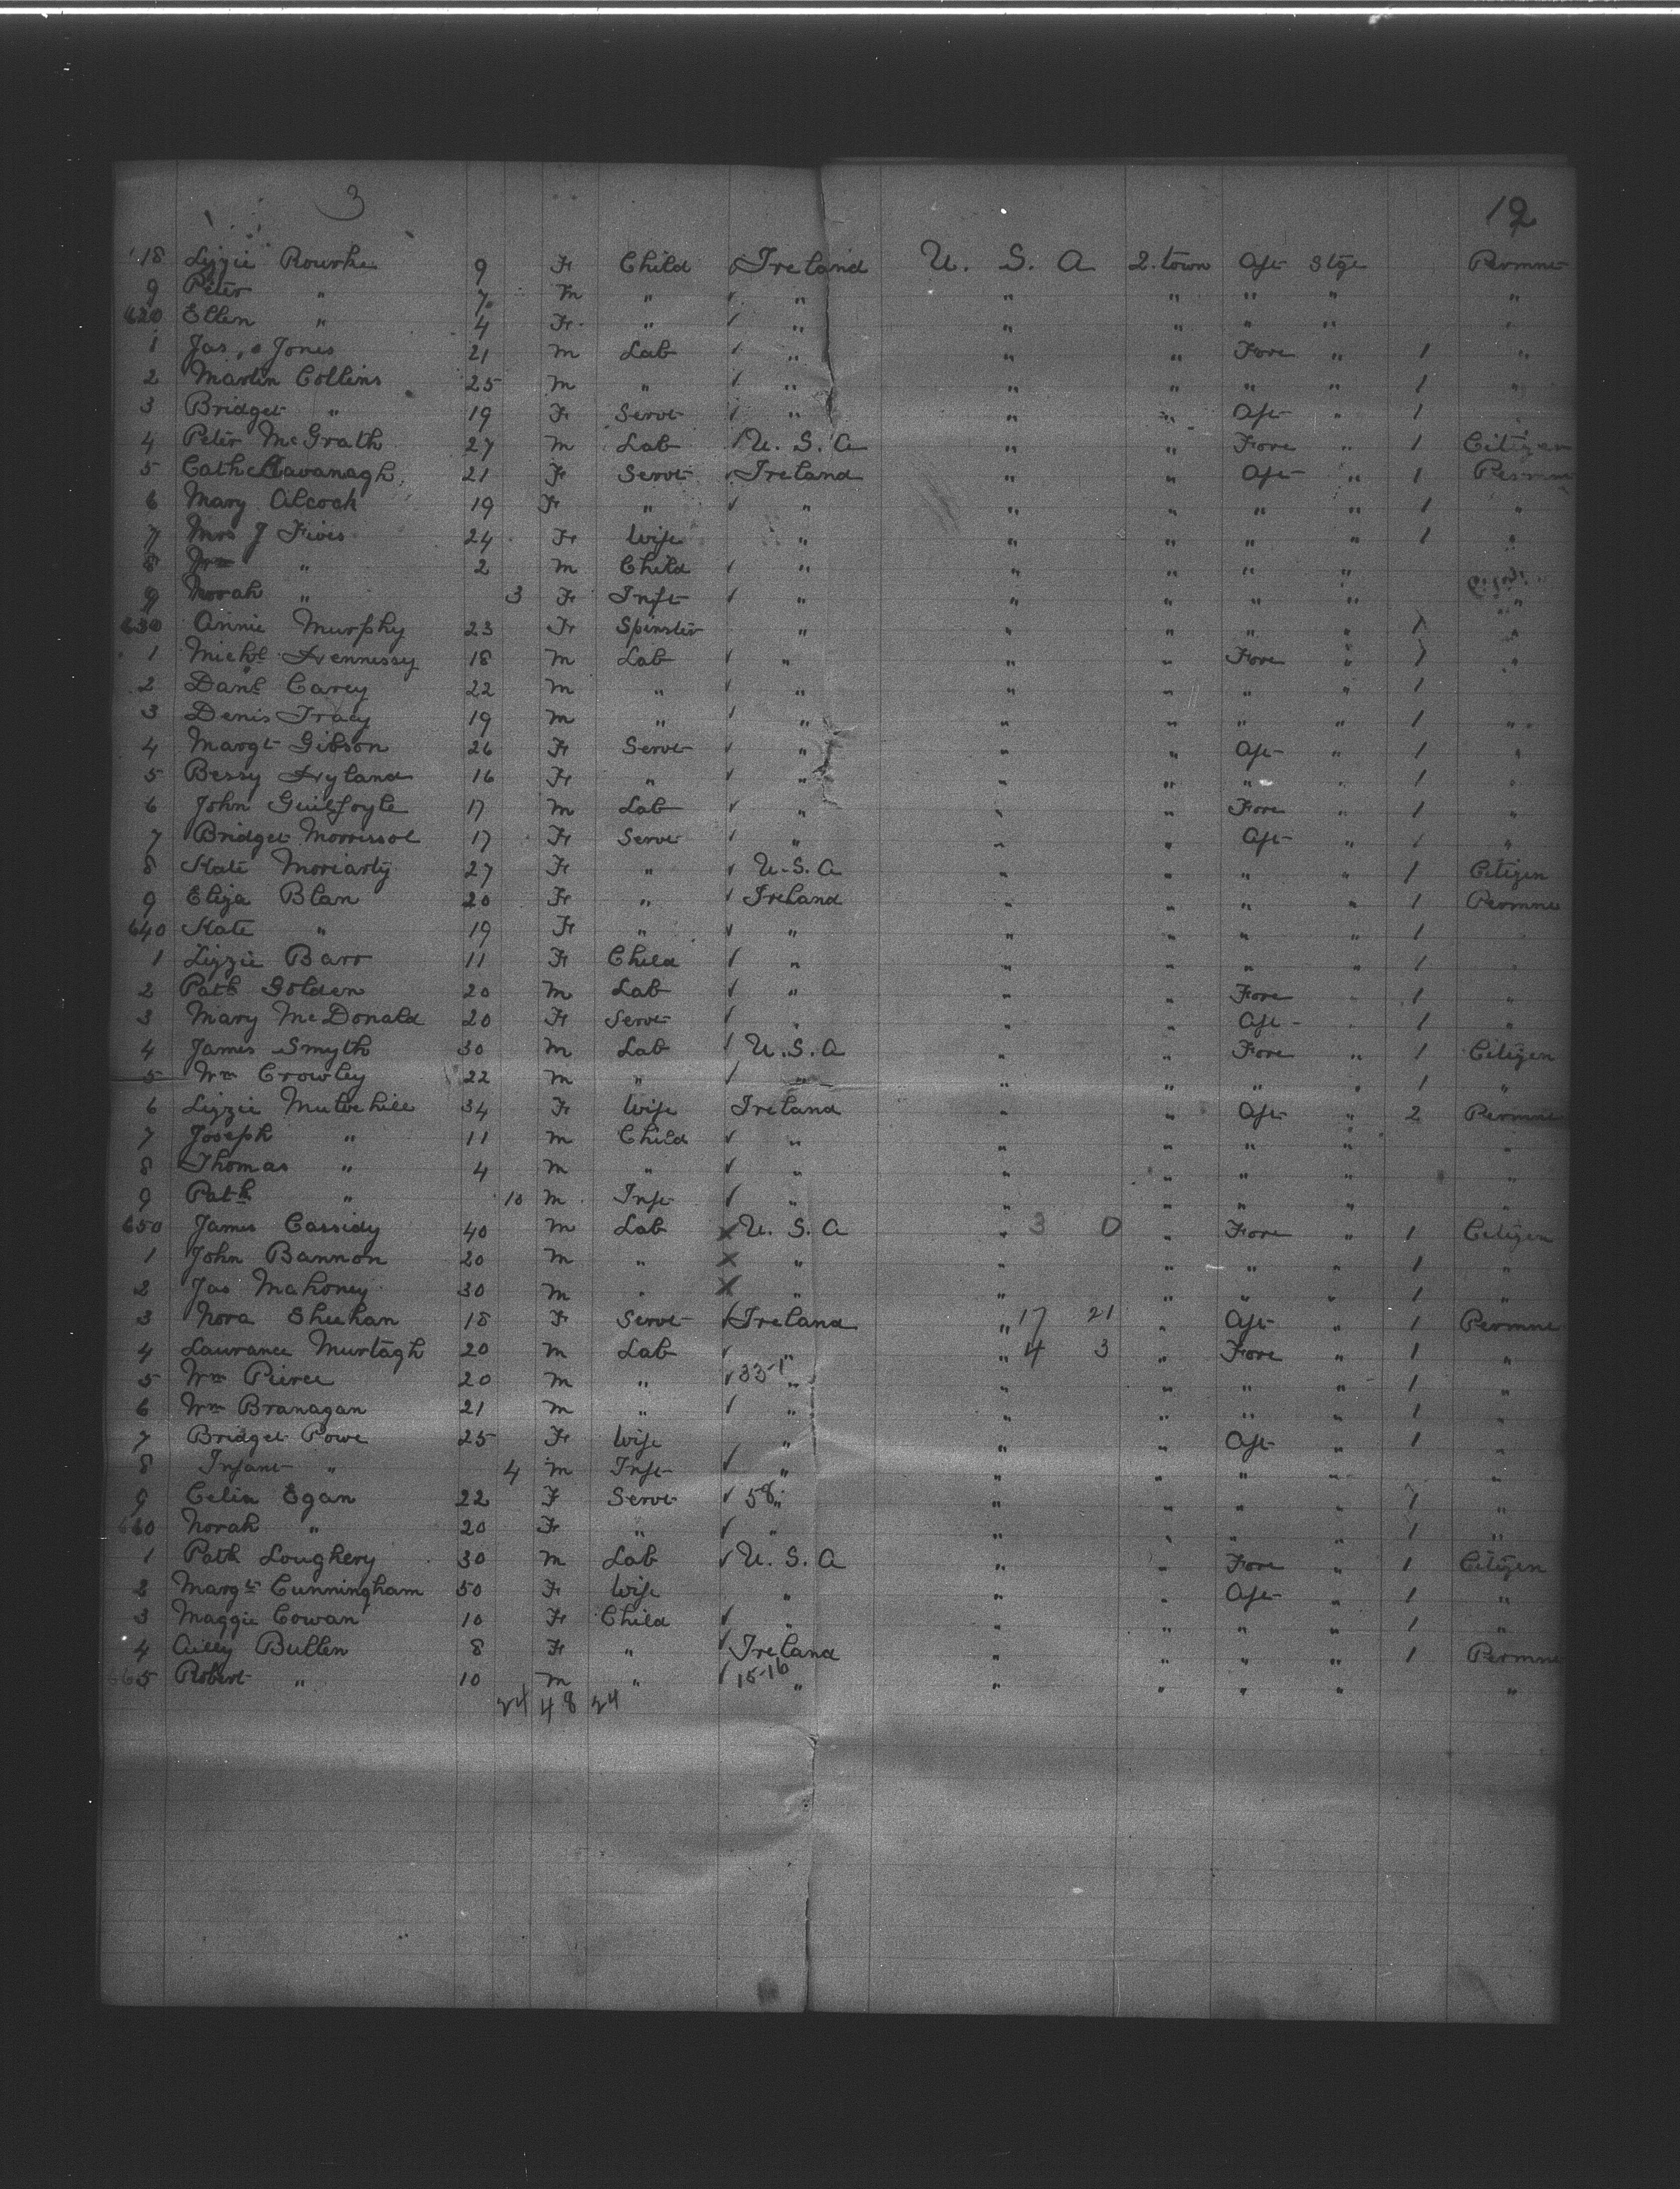 3 12
18 Lizzie Rourke 9 Fe Child Ireland U. S. A 2.town Aft Stge Permne
9 Peter " 7 m " " " " " " "
620 Ellen " 4 Fe " " " " " " "
1 Jas. Jones 21 m Lab " " " Fore " 1 "
2 Martin Collins 25 m " " " " " " 1 "
3 Bridget " 19 Fe Servt " " " Aft " 1 "
4 Peter McGrath 27 m Lab U. S. A " " Fore " 1 Citizen
5 Cath Kavanagh 21 Fe Servt Ireland " " Aft " 1 Permne
6 Mary Alcock 19 Fe " " " " " " 1 "
7 Mrs J Fives 24 Fe Wife " " " " " 1 "
8 " 2 m Child " " " " "
9 Norah " 3 Fe Inft " " " " " "
630 Annie Murphy 23 Fe Spinster " " " " " 1 "
1 Michl Hennessy 18 m Lab " " " Fore " 1 "
2 Danl Carey 22 m " " " " " " 1
3 Denis Tracy 19 m " " " " " " 1 "
4 Margt Gibson 26 Fe Servt " " " Aft " 1 "
5 Bessy Hyland 16 Fe " " " " " " 1 "
6 John Guilfoyle 17 m Lab " " " Fore " 1 "
7 Bridget 17 Fe Servt " " " Aft " 1 "
8 Kate Moriarty 27 Fe " U.S.A " " " " 1 Citizen
9 Eliza Blan 20 Fe " Ireland " " " " 1 Permne
640 Kate " 19 Fe " " " " " " 1 "
1 Lizzie Barr 11 Fe Child " " " " " 1 "
2 Patk Golden 20 m Lab " " " Fore " 1 "
3 Mary McDonald 20 Fe Servt " " " Aft " 1 "
4 James Smyth 30 m Lab U.S.A " " Fore " 1 Citizen
5 Wm Crowley 22 m " " " " " " 1 "
6 Lizzie Mulvehill 34 Fe Wife Ireland " " Aft " 2 Permne
7 Joseph " 11 m Child " " " " " "
8 Thomas " 4 m " " " " " " "
9 Patk " 10 m Inft " " " " " "
650 James Cassidy 40 m Lab U. S. A " 3 0 " Fore " 1 Citizen
1 John Bannon 20 m " " " " " " 1 "
2 Jas Mahoney 30 m " " " " " " 1 "
3 Nora Sheehan 18 Fe Servt Ireland " 17 21 " Aft " 1 Permne
4 Laurance Murtagh 20 m Lab " " 4 3 " Fore " 1 "
5 Wm Pierce 20 m " 33-1 " " " " " 1 "
6 Wm Branagan 21 m " " " " " " 1 "
7 Bridget Powe 25 Fe Wife " " " Aft " 1 "
8 Infant " 4 m Inft " " " " " "
9 Celia Egan 22 F Servt 58 " " " " " 1 "
660 Norah " 20 Fe " " " " " " 1 "
1 Patk Loughery 30 m Lab U. S. A " " Fore " 1 Citizen
2 Margt Cunningham 50 Fe Wife " " " Aft " 1 "
3 Maggie Cowan 10 Fe Child " " " " " 1 "
4 Bullen 8 Fe " Ireland " " " " 1 Permne
665 Robert " 10 m " 15-16 " " " " " "
24 48 24